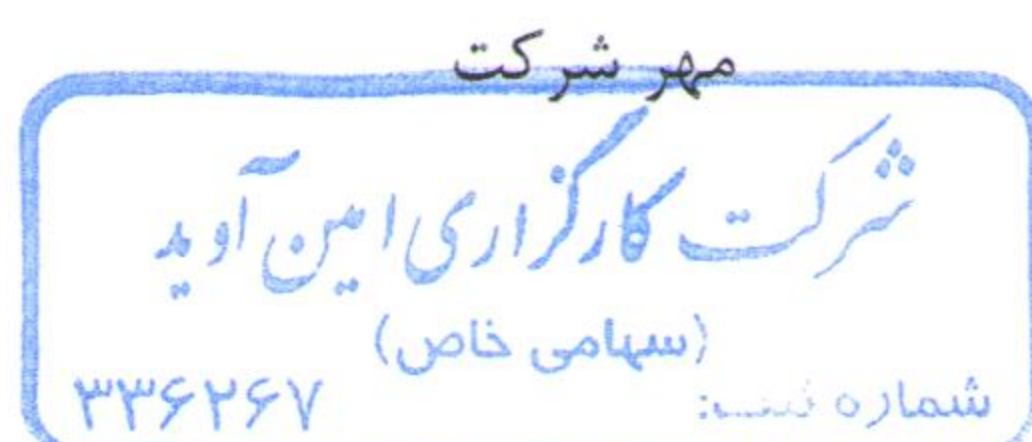 مهر شرکت
شرکت کارگزاری امین آوید
(سهامی خاص)
شماره ثبت: ۳۳۶۲۶۷